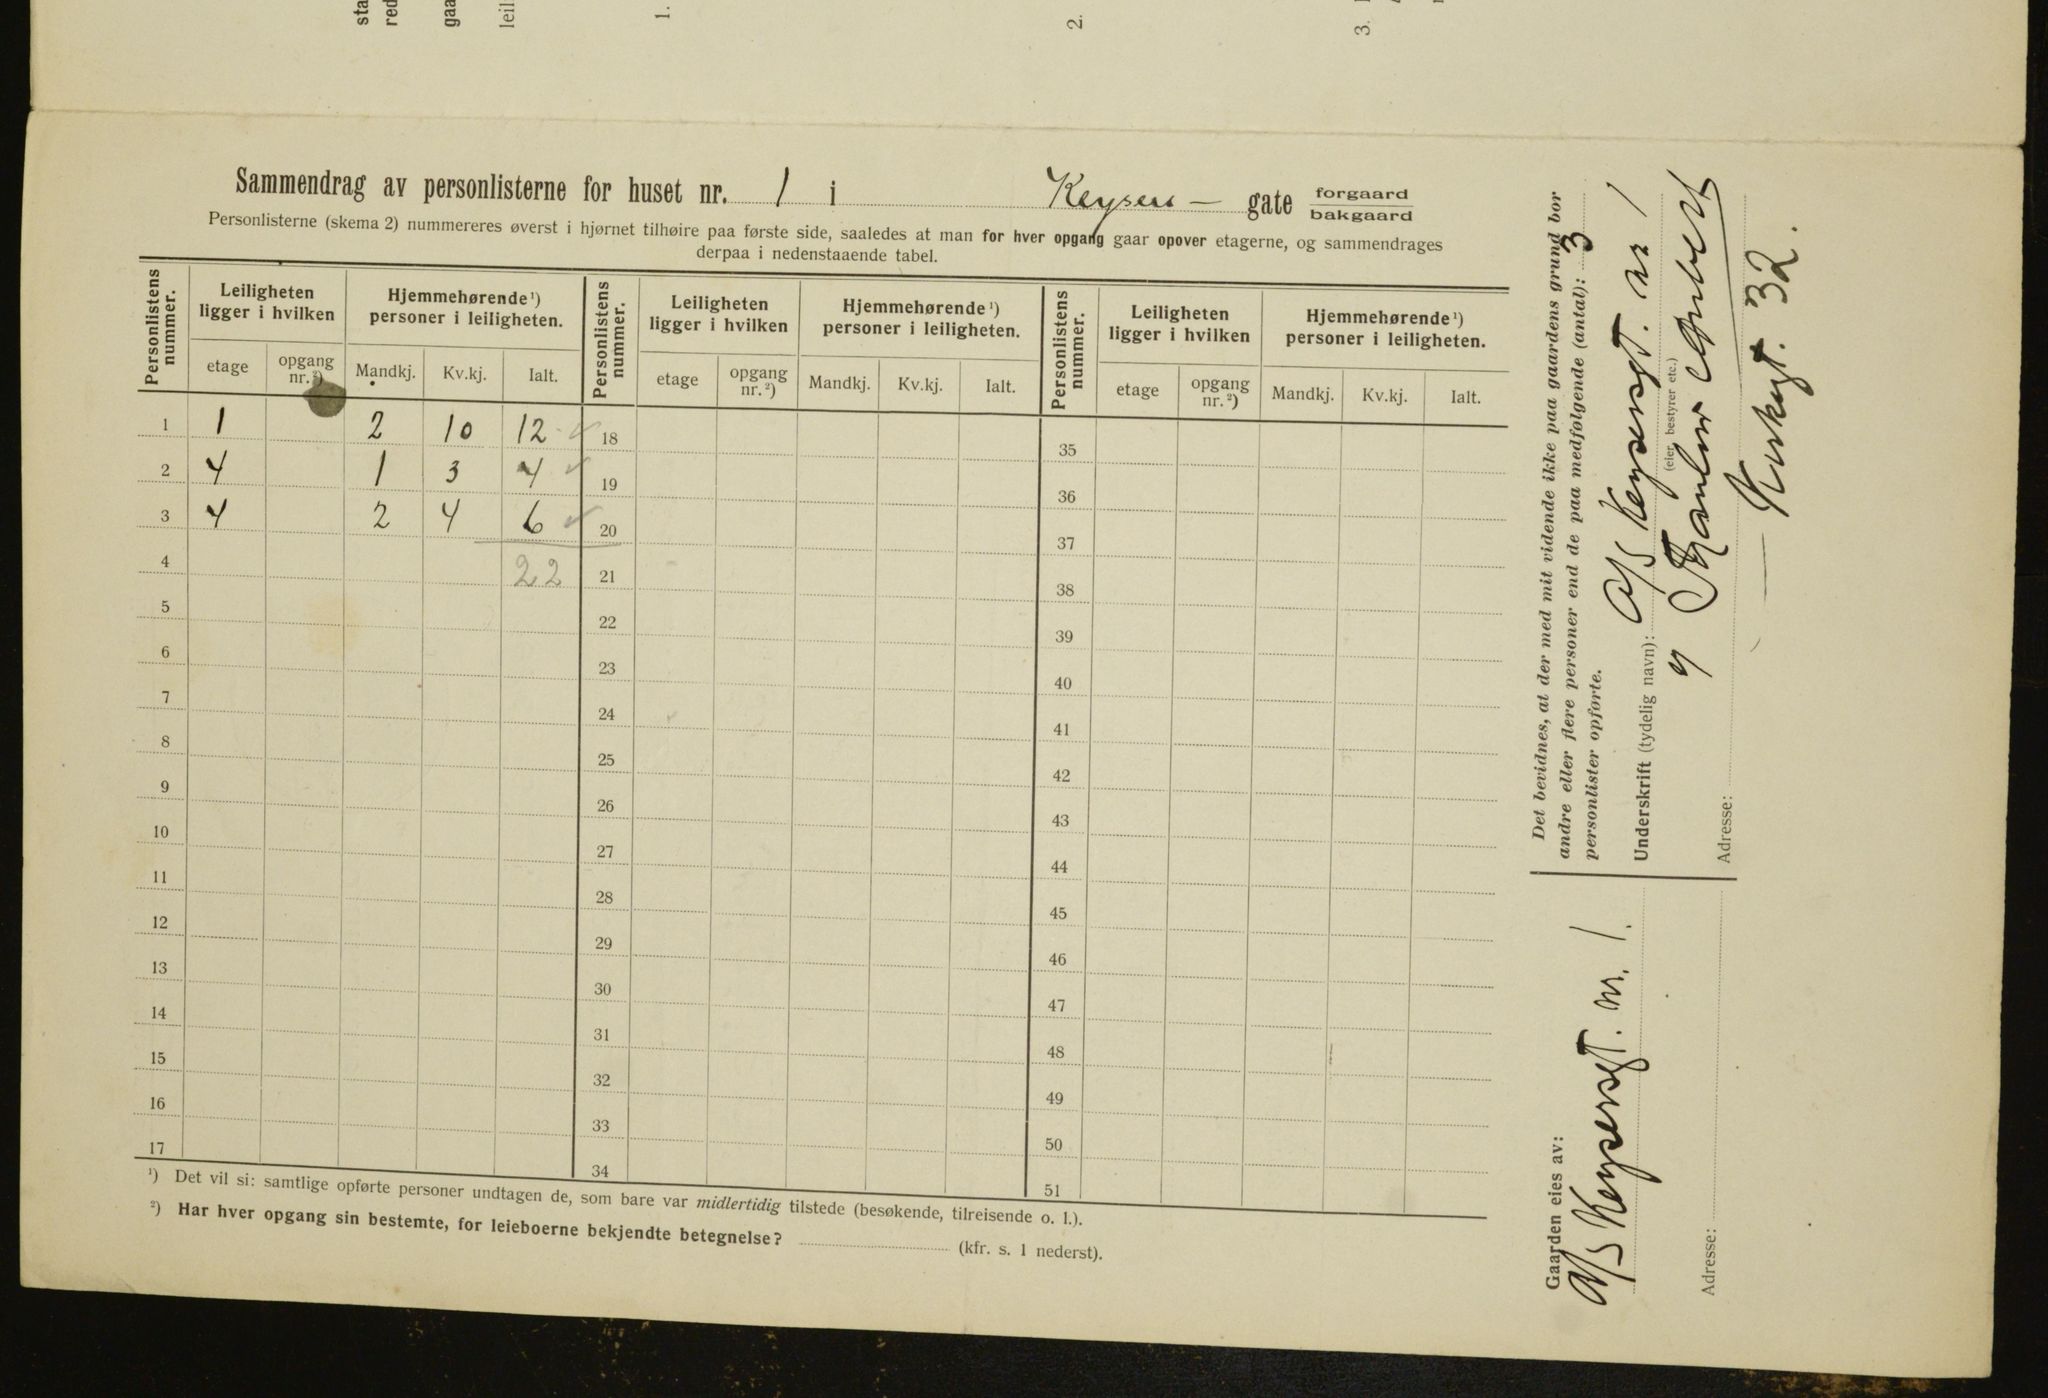 sta
red
gaa
leil
1.
2.
3.
Sammendrag av personlisterne for huset nr. 1 i Keysers — gate forgaard
bakgaard
Personlisterne (skema 2) nummereres øverst i hjørnet tilhøire paa første side, saaledes at man for hver opgang gaar opover etagerne, og sammendrages
derpaa i nedenstaaende tabel.
Personlistens nummer. Leiligheten ligger i hvilken Hjemmehørende ¹) personer i leiligheten. Personlistens nummer. Leiligheten ligger i hvilken Hjemmehørende ¹) personer i leiligheten. Personlistens nummer. Leiligheten ligger i hvilken Hjemmehørende ¹) personer i leiligheten.
etage opgang nr. ²) Mandkj. Kv.kj. Ialt. etage opgang nr. ²) Mandkj. Kv.kj. Ialt. etage opgang nr. ²) Mandkj. Kv.kj. Ialt.
1 1 2 10 12 ✓ 18 35
2 4 1 3 4 ✓ 19 36
3 4 2 4 6 ✓ 20 37
4 22 21 38
5 22 39
6 23 40
7 24 41
8 25 42
9 26 43
10 27 44
11 28 45
12 29 46
13 30 47
14 31 48
15 32 49
16 33 50
17 34 51
¹) Det vil si: samtlige opførte personer undtagen de, som bare var midlertidig tilstede (besøkende, tilreisende o. l.).
²) Har hver opgang sin bestemte, for leieboerne bekjendte betegnelse? (kfr. s. 1 nederst).
Det bevidnes, at der med mit vidende ikke paa gaardens grund bor
andre eller flere personer end de paa medfølgende (antal): 3
personlister opførte.
Underskrift (tydelig navn): A/S Keysersgt. nr 1
(eier, bestyrer etc.)
Adresse: Kirkegt. 32.
Gaarden eies av:
A/S Keysersgt. nr. 1.
Adresse: